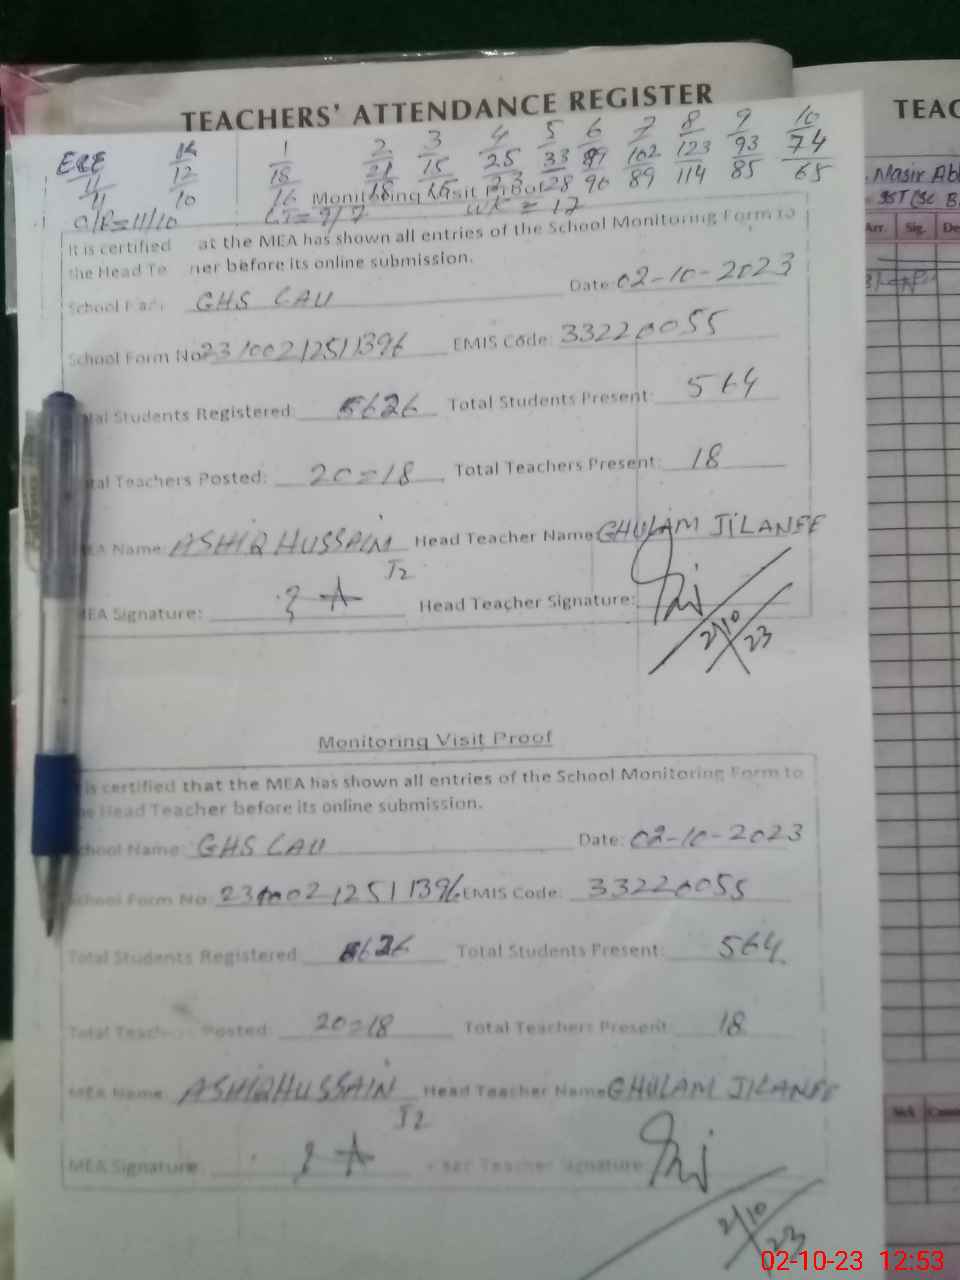 TEACHERS' ATTENDANCE REGISTER
TEAC
ECE 14 1 2 3 4 5 6 7 8 9 10
11 12 18 21 15 25 33 102 123 93 74
11 10 16 18 15 23 28 90 89 114 85 65
Monitoring Visit Proof
a/R=11/10
= 12
Nasir Ab
SST (Sc B.
Arr. Sig. De
It is certified at the MEA has shown all entries of the School Monitoring Form to
the Head Te ner before its online submission.
School GHS CAU Date: 02-10-2023
School Form No 23100212511396 EMIS Code: 33220055
tal Students Registered: 626 Total Students Present: 564
tal Teachers Posted: 20=18 Total Teachers Present: 18
EA Name: ASHIQ HUSSAIN Head Teacher Name GHULAM JILANEE
J2
MEA Signature: Head Teacher Signature:
2/10
23
Monitoring Visit Proof
is certified that the MEA has shown all entries of the School Monitoring Form to
he Head Teacher before its online submission.
chool Name: GHS CAU Date: 02-10-2023
chool Form No: 23100212511396 EMIS Code: 33220055
Total Students Registered 626 Total Students Present: 564
Total Teachers Posted: 20=18 Total Teachers Present 18
MEA Name: ASHIQ HUSSAIN Head Teacher Name GHULAM JILANEE
J2
MEA Signature: Teacher Signature:
2/10
23
02-10-23 12:53